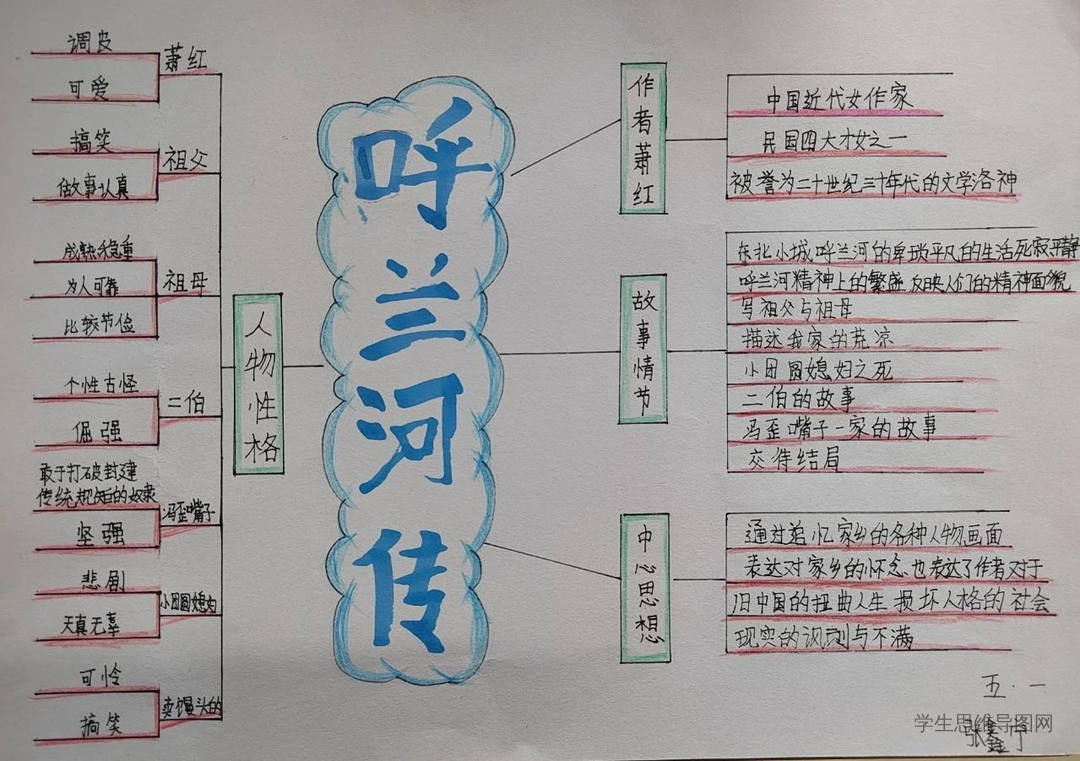 呼兰河传
作者萧红
中国近代女作家
民国四大才女之一
被誉为二十世纪三十年代的文学洛神
故事情节
东北小城呼兰河的卑琐平凡的生活死寂平静
呼兰河精神上的繁盛 反映人们的精神面貌
写祖父与祖母
描述我家的荒凉
小团圆媳妇之死
二伯的故事
冯歪嘴子一家的故事
交待结局
中心思想
通过追忆家乡的各种人物画面
表达对家乡的怀念也表达了作者对于
旧中国的扭曲人生 损坏人格的社会
现实的讽刺与不满
人物性格
萧红
调皮
可爱
祖父
搞笑
做故事认真
祖母
成熟稳重
为人可靠
比较节俭
二伯
个性古怪
倔强
冯歪嘴子
敢于打破封建
传统规矩的奴隶
坚强
小团圆媳妇
悲剧
天真无辜
卖馒头的
可怜
搞笑
五·一
学生思维导图网